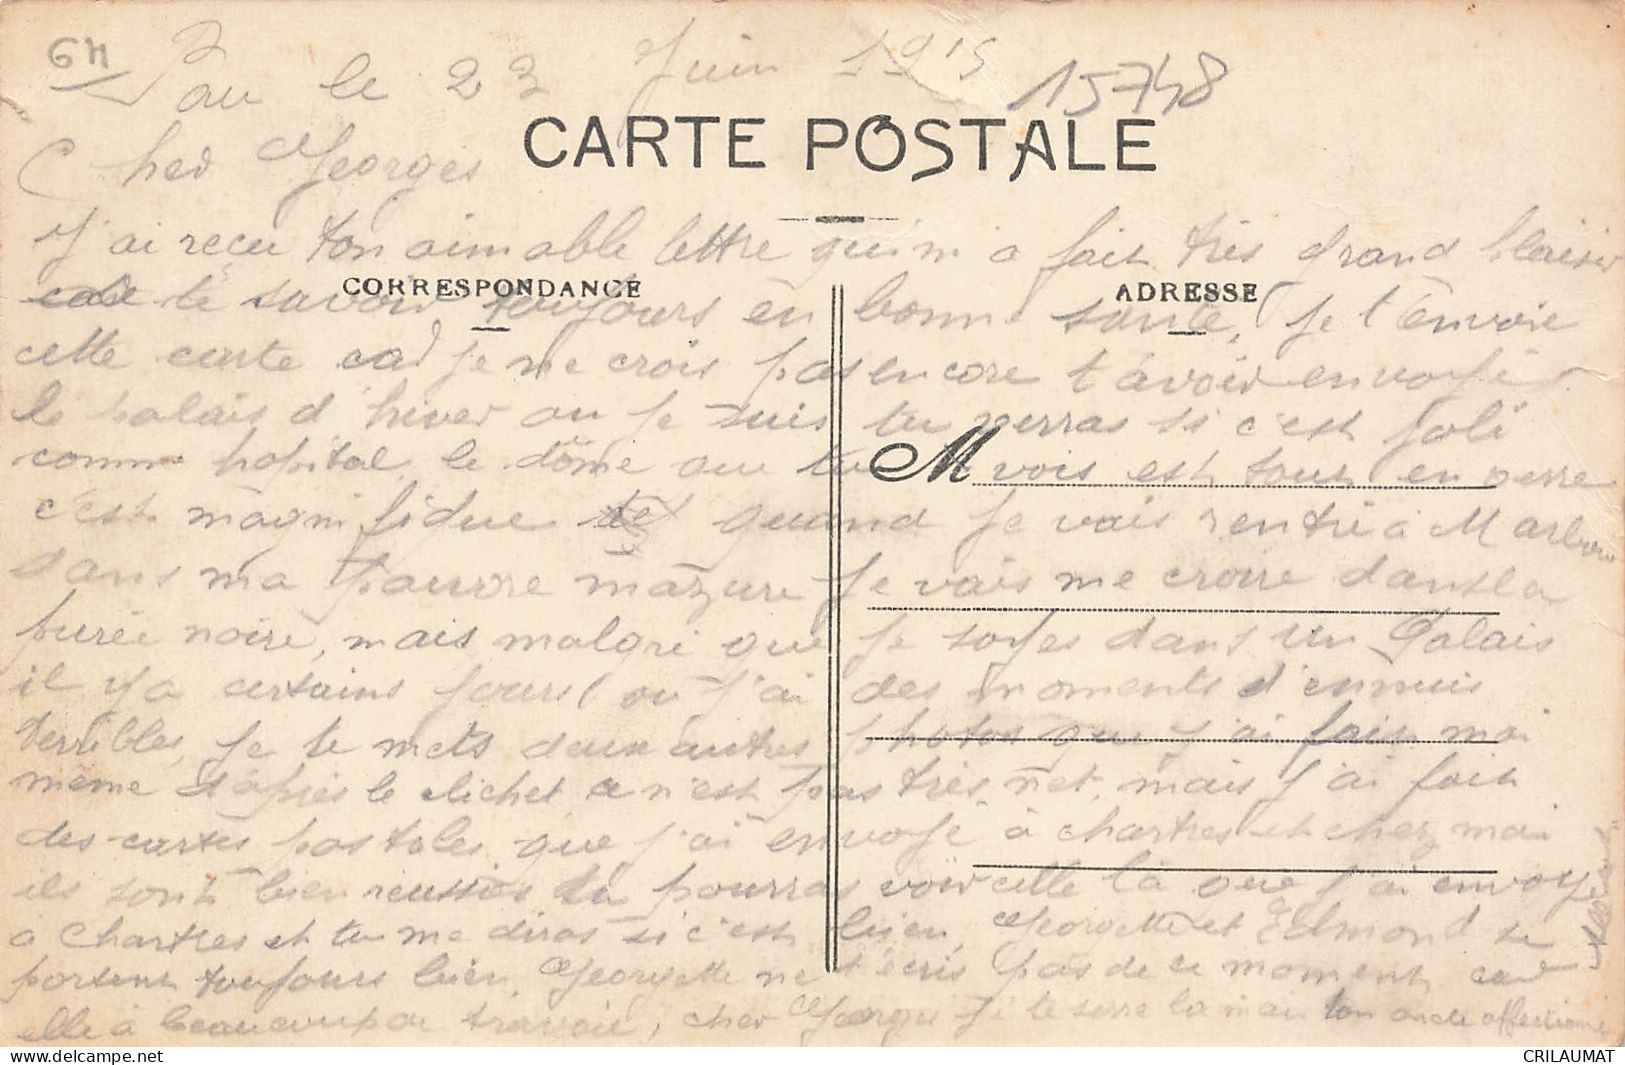 64
Pau le 23 Juin 1915
15748
CARTE POSTALE
Cher Georges
J'ai reçu ton aimable lettre qui m'a fait très grand plaisir
CORRESPONDANCE
ADRESSE
de te savoir toujours en bonne santé, je t'envoie
cette carte car je ne crois pas encore t'avoir envoyér
le palais d'hiver ou je suis tu verras si c'est joli
comme hopital le dôme que tu vois est tout en verre
M
c'est magnifique quand je vais rentré à
dans ma pauvre mazure je vais me croire dans la
purée noire, mais malgré que je soyes dans un Palais
il y a certains jours ou j'ai des moments d'ennuis
terribles, je te mets deux autres photos que j'ai fais moi
même d'après le clichet ce n'est pas très net, mais j'ai fait
des cartes postales que j'ai envoyé à chartres et chez moi
ils sont bien réussies tu pourras voir celle là que j'ai envoyé
à Chartres et tu me diras si c'est bien, Georgette et Edmond se
portent toujours bien, Georgette ne t'écris pas de ce moment car
elle à beaucoup de travaie, cher Georges je te serre la main ton oncle affectionné
CRILAUMAT